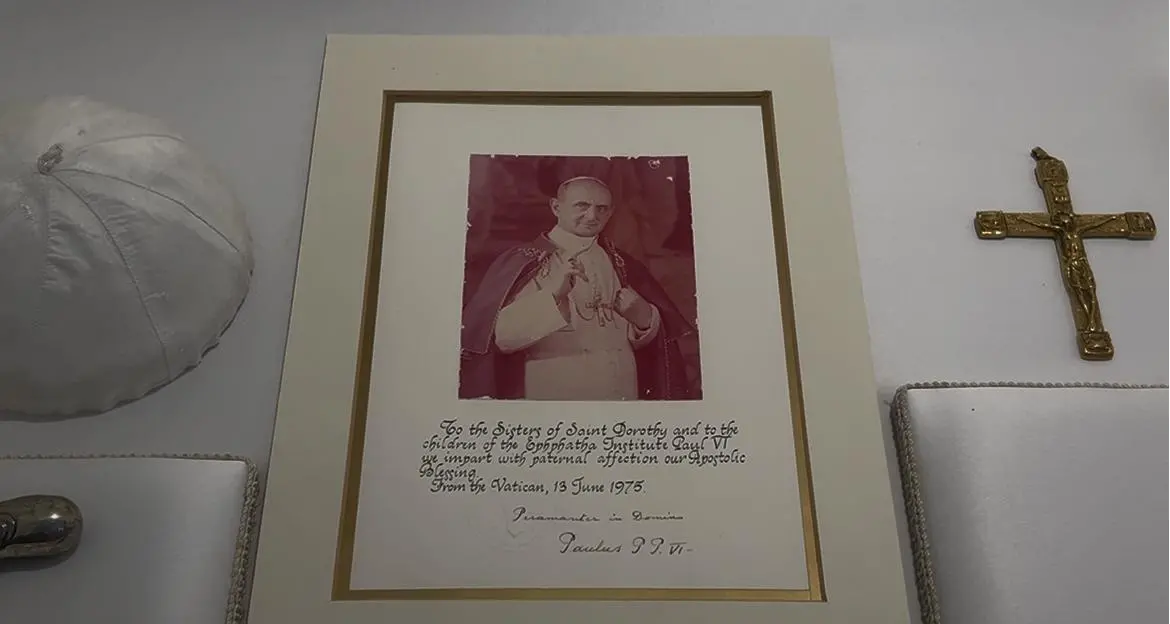 To the Sisters of Saint Dorothy and to the
children of the Ephphatha Institute Paul VI
we impart with paternal affection our Apostolic
Blessing.
From the Vatican, 13 June 1975.
Peramanter in Domino
Paulus P P. VI